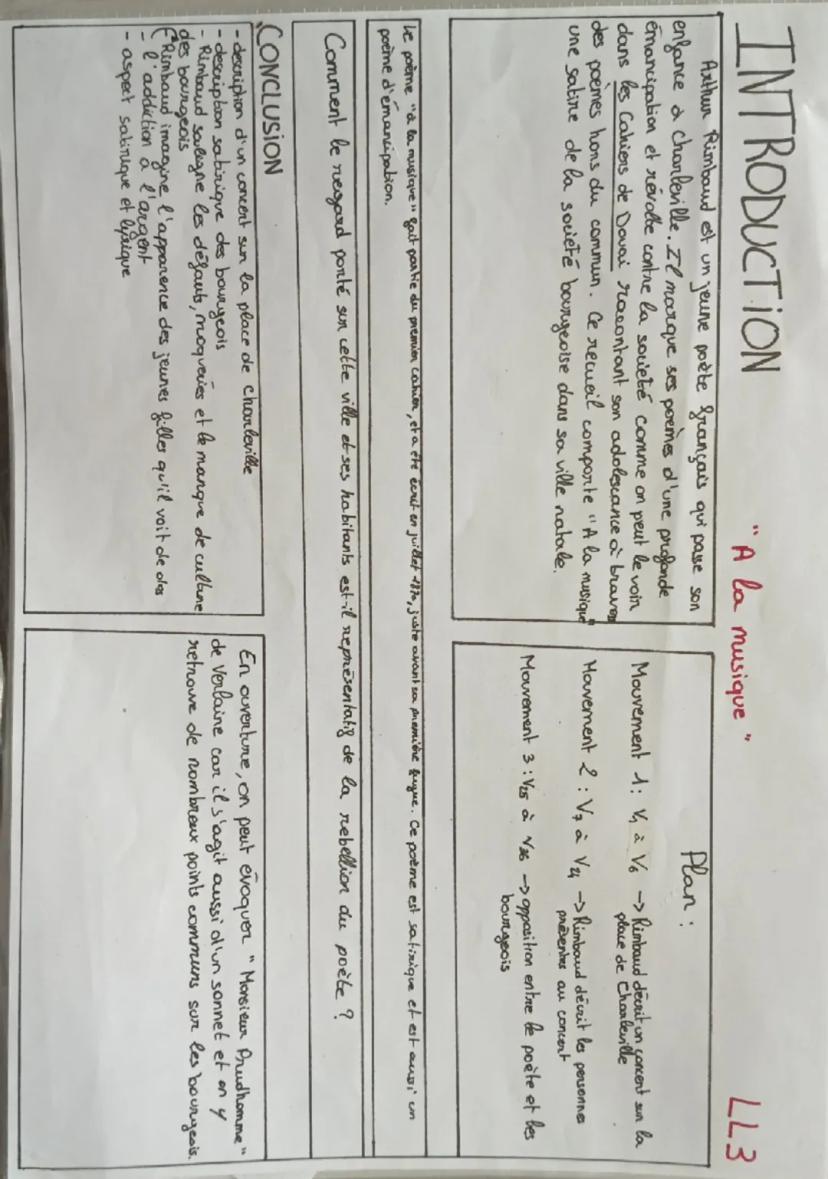 INTRODUCTION
"A la musique"
LL3
Arthur Rimbaud est un jeune poète français qui passe son
enfance à Charleville. Il marque ses poèmes d'une profonde
émancipation et révolte contre la société comme on peut le voir
dans les Cahiers de Douai racontant son adolescence à travers
des poèmes hors du commun. Ce recueil comporte "A la musique"
une satire de la société bourgeoise dans sa ville natale.
Plan :
Mouvement 1 : V1 à V6 -> Rimbaud décrit un concert sur la
place de Charleville
Mouvement 2 : V7 à V24 -> Rimbaud décrit les personnes
présentes au concert
Mouvement 3 : V25 à V36 -> opposition entre le poète et les
bourgeois
Le poème "à la musique" fait partie du premier cahier, et a été écrit en juillet 1870, juste avant sa première fugue. Ce poème est satirique et est aussi un
poème d'émancipation.
Comment le regard porté sur cette ville et ses habitants est-il représentatif de la rebellion du poète ?
CONCLUSION
- description d'un concert sur la place de Charleville
- description satirique des bourgeois
- Rimbaud souligne les défauts, moqueries et le manque de culture
des bourgeois
- Rimbaud imagine l'apparence des jeunes filles qu'il voit de dos
- l'addiction à l'argent
- aspect satirique et lyrique
En ouverture, on peut évoquer "Monsieur Prudhomme"
de Verlaine car il s'agit aussi d'un sonnet et on y
retrouve de nombreux points communs sur les bourgeois.